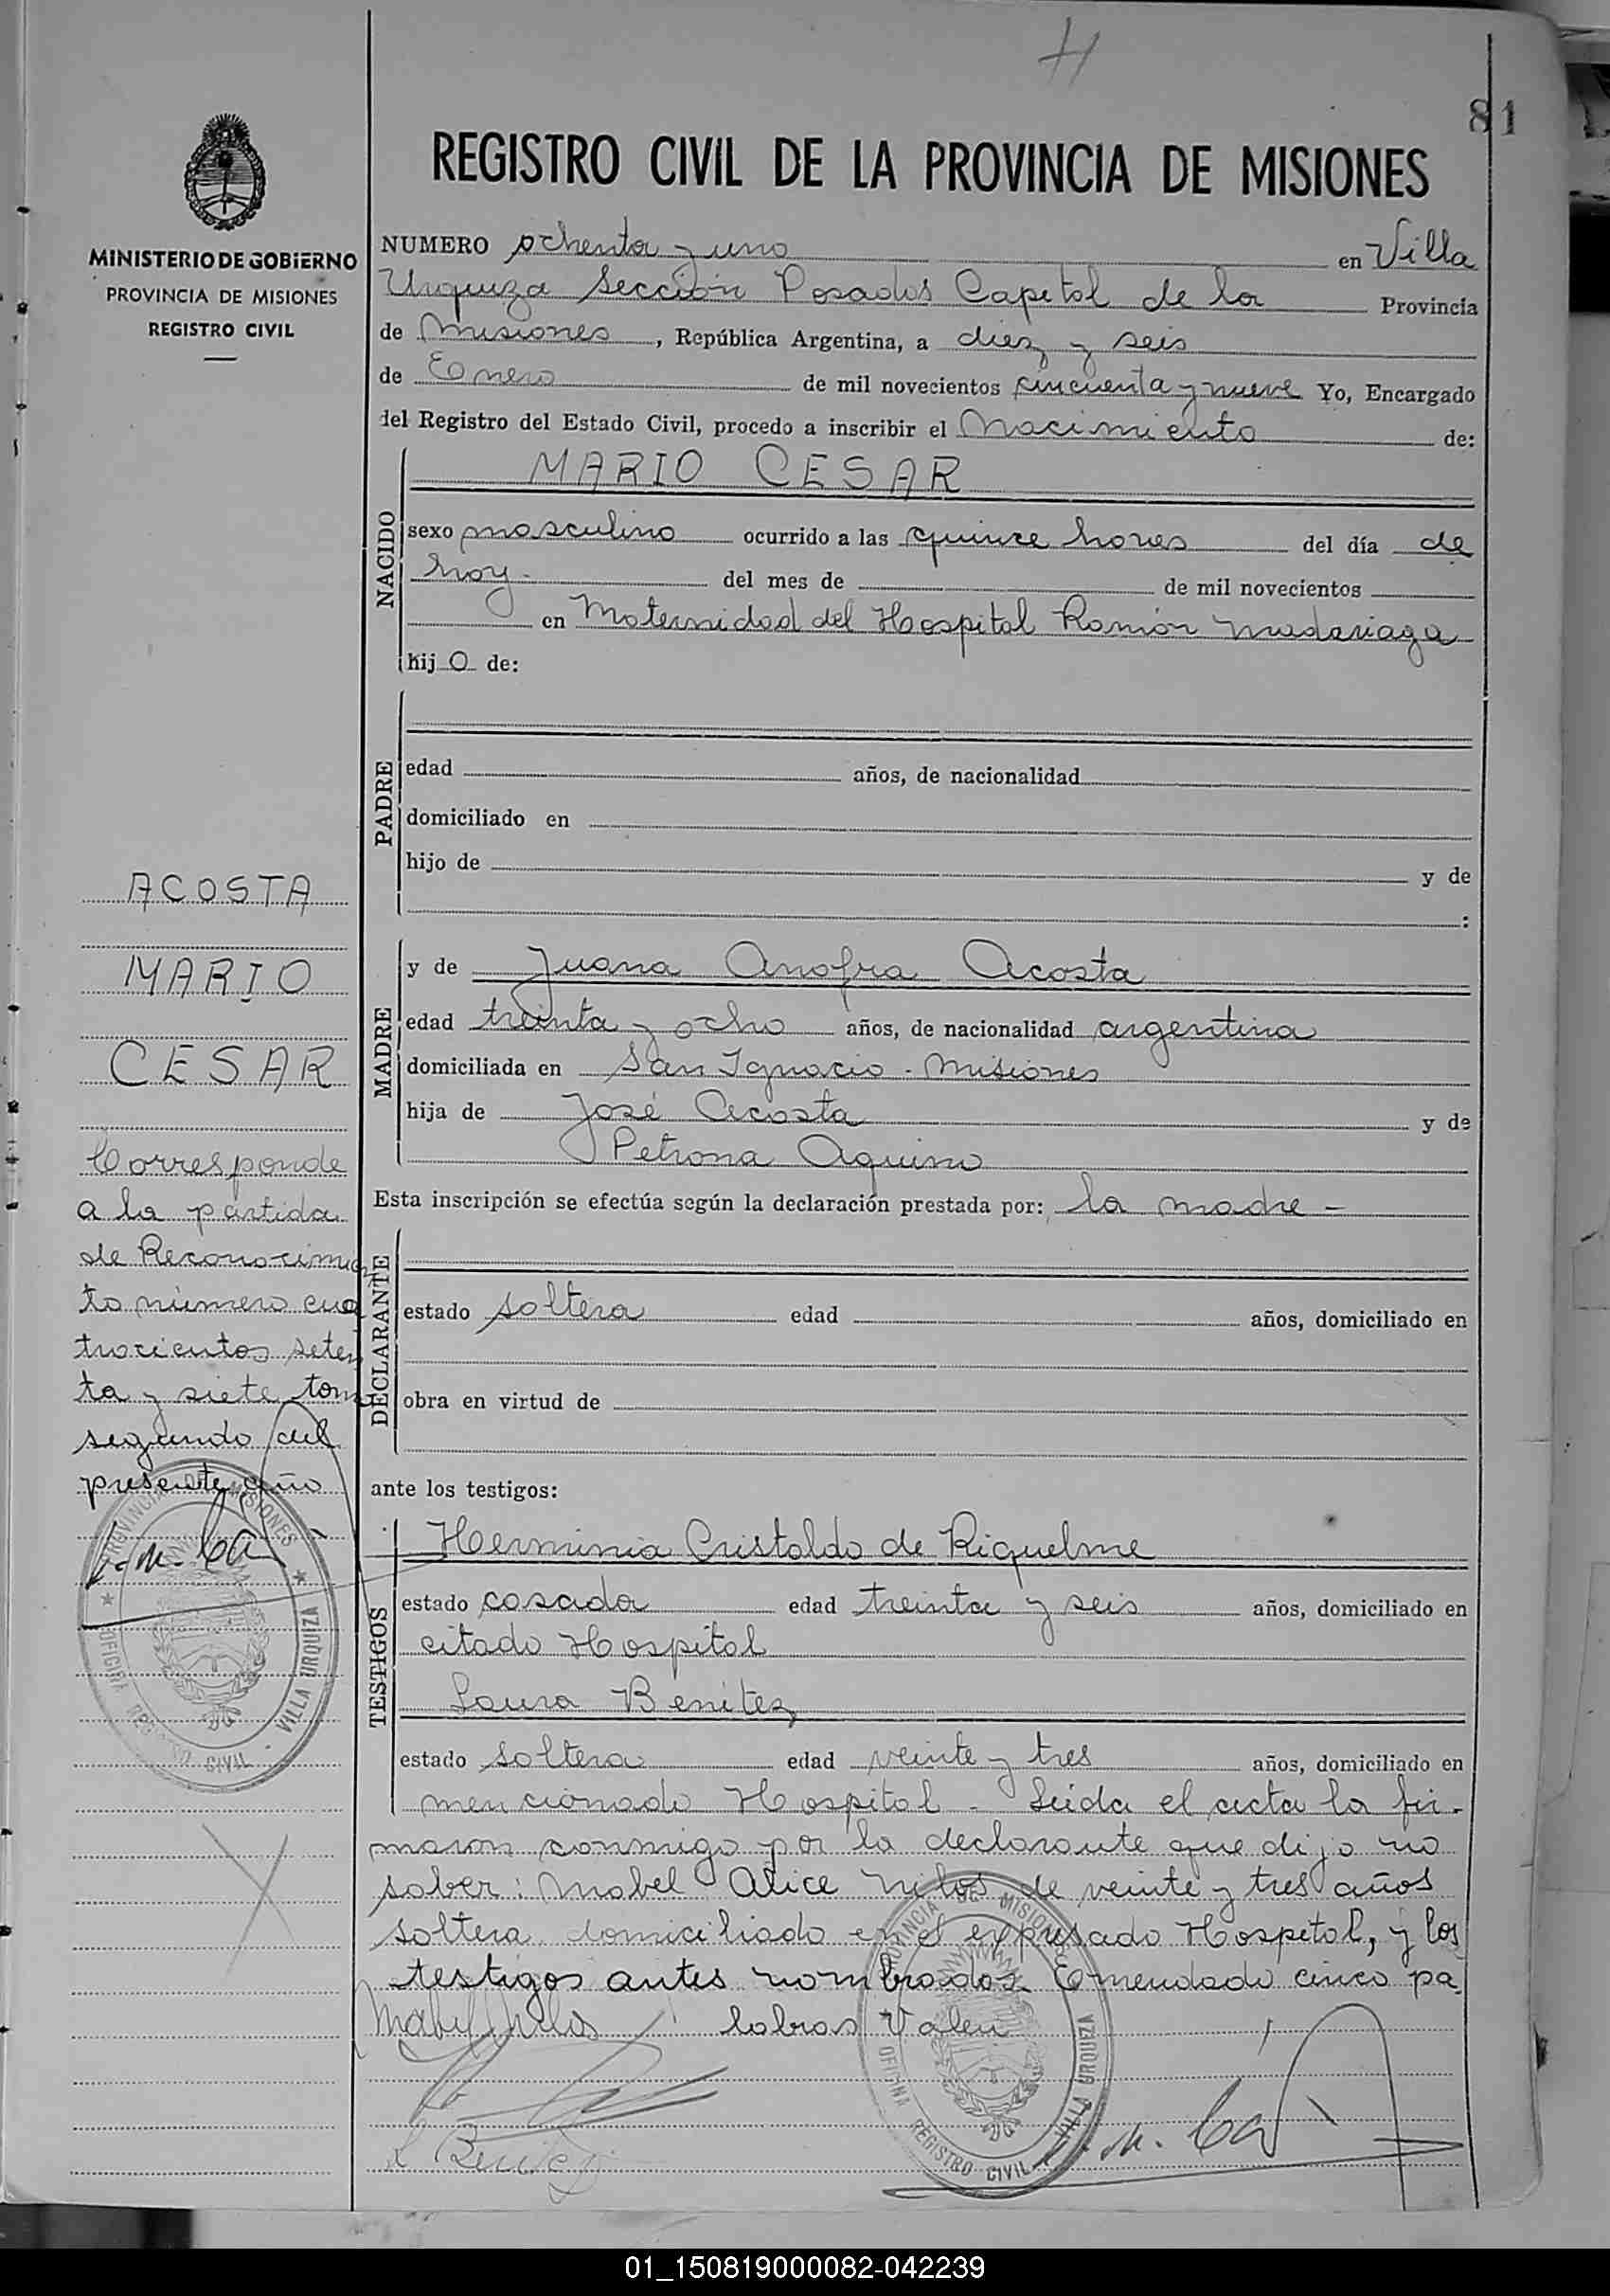 H
81
REGISTRO CIVIL DE LA PROVINCIA DE MISIONES
MINISTERIO DE GOBIERNO
PROVINCIA DE MISIONES
REGISTRO CIVIL
NUMERO ochenta y uno en Villa
Urquiza Sección Posadas Capital de la Provincia
de Misiones, República Argentina, a diez y seis
de Enero de mil novecientos cincuenta y nueve Yo, Encargado
del Registro del Estado Civil, procedo a inscribir el Nacimiento de:
NACIDO
MARIO CESAR
sexo masculino ocurrido a las quince horas del día de
hoy. del mes de de mil novecientos
en Maternidad del Hospital Ramón Madariaga
hijo de:
PADRE
edad años, de nacionalidad
domiciliado en
hijo de y de
:
MADRE
y de Juana Anofra Acosta
edad treinta y ocho años, de nacionalidad argentina
domiciliada en San Ignacio - Misiones
hija de José Acosta y de
Petrona Aquino
Esta inscripción se efectúa según la declaración prestada por: la madre -
DECLARANTE
estado soltera edad años, domiciliado en
obra en virtud de
ante los testigos:
TESTIGOS
Herminia Cristaldo de Riquelme
estado casada edad treinta y seis años, domiciliado en
citado Hospital
Laura Benitez
estado soltera edad veinte y tres años, domiciliado en
mencionado Hospital - Leida el acta la fir-
maron conmigo por la declarante que dijo no
saber: Mabel Alice de veinte y tres años
soltera domiciliada en el expresado Hospital, y los
testigos antes nombrados. Enmendado cinco pa
labras Valen
L Benitez
ACOSTA
MARIO
CESAR
Corresponde
a la partida
de Reconocimien
to número cua
trocientos seten
ta y siete tomo
segundo del
presente año
PROVINCIA DE MISIONES
OFICINA REGISTRO CIVIL - VILLA URQUIZA
PROVINCIA DE MISIONES
OFICINA REGISTRO CIVIL - VILLA URQUIZA
01_150819000082-042239